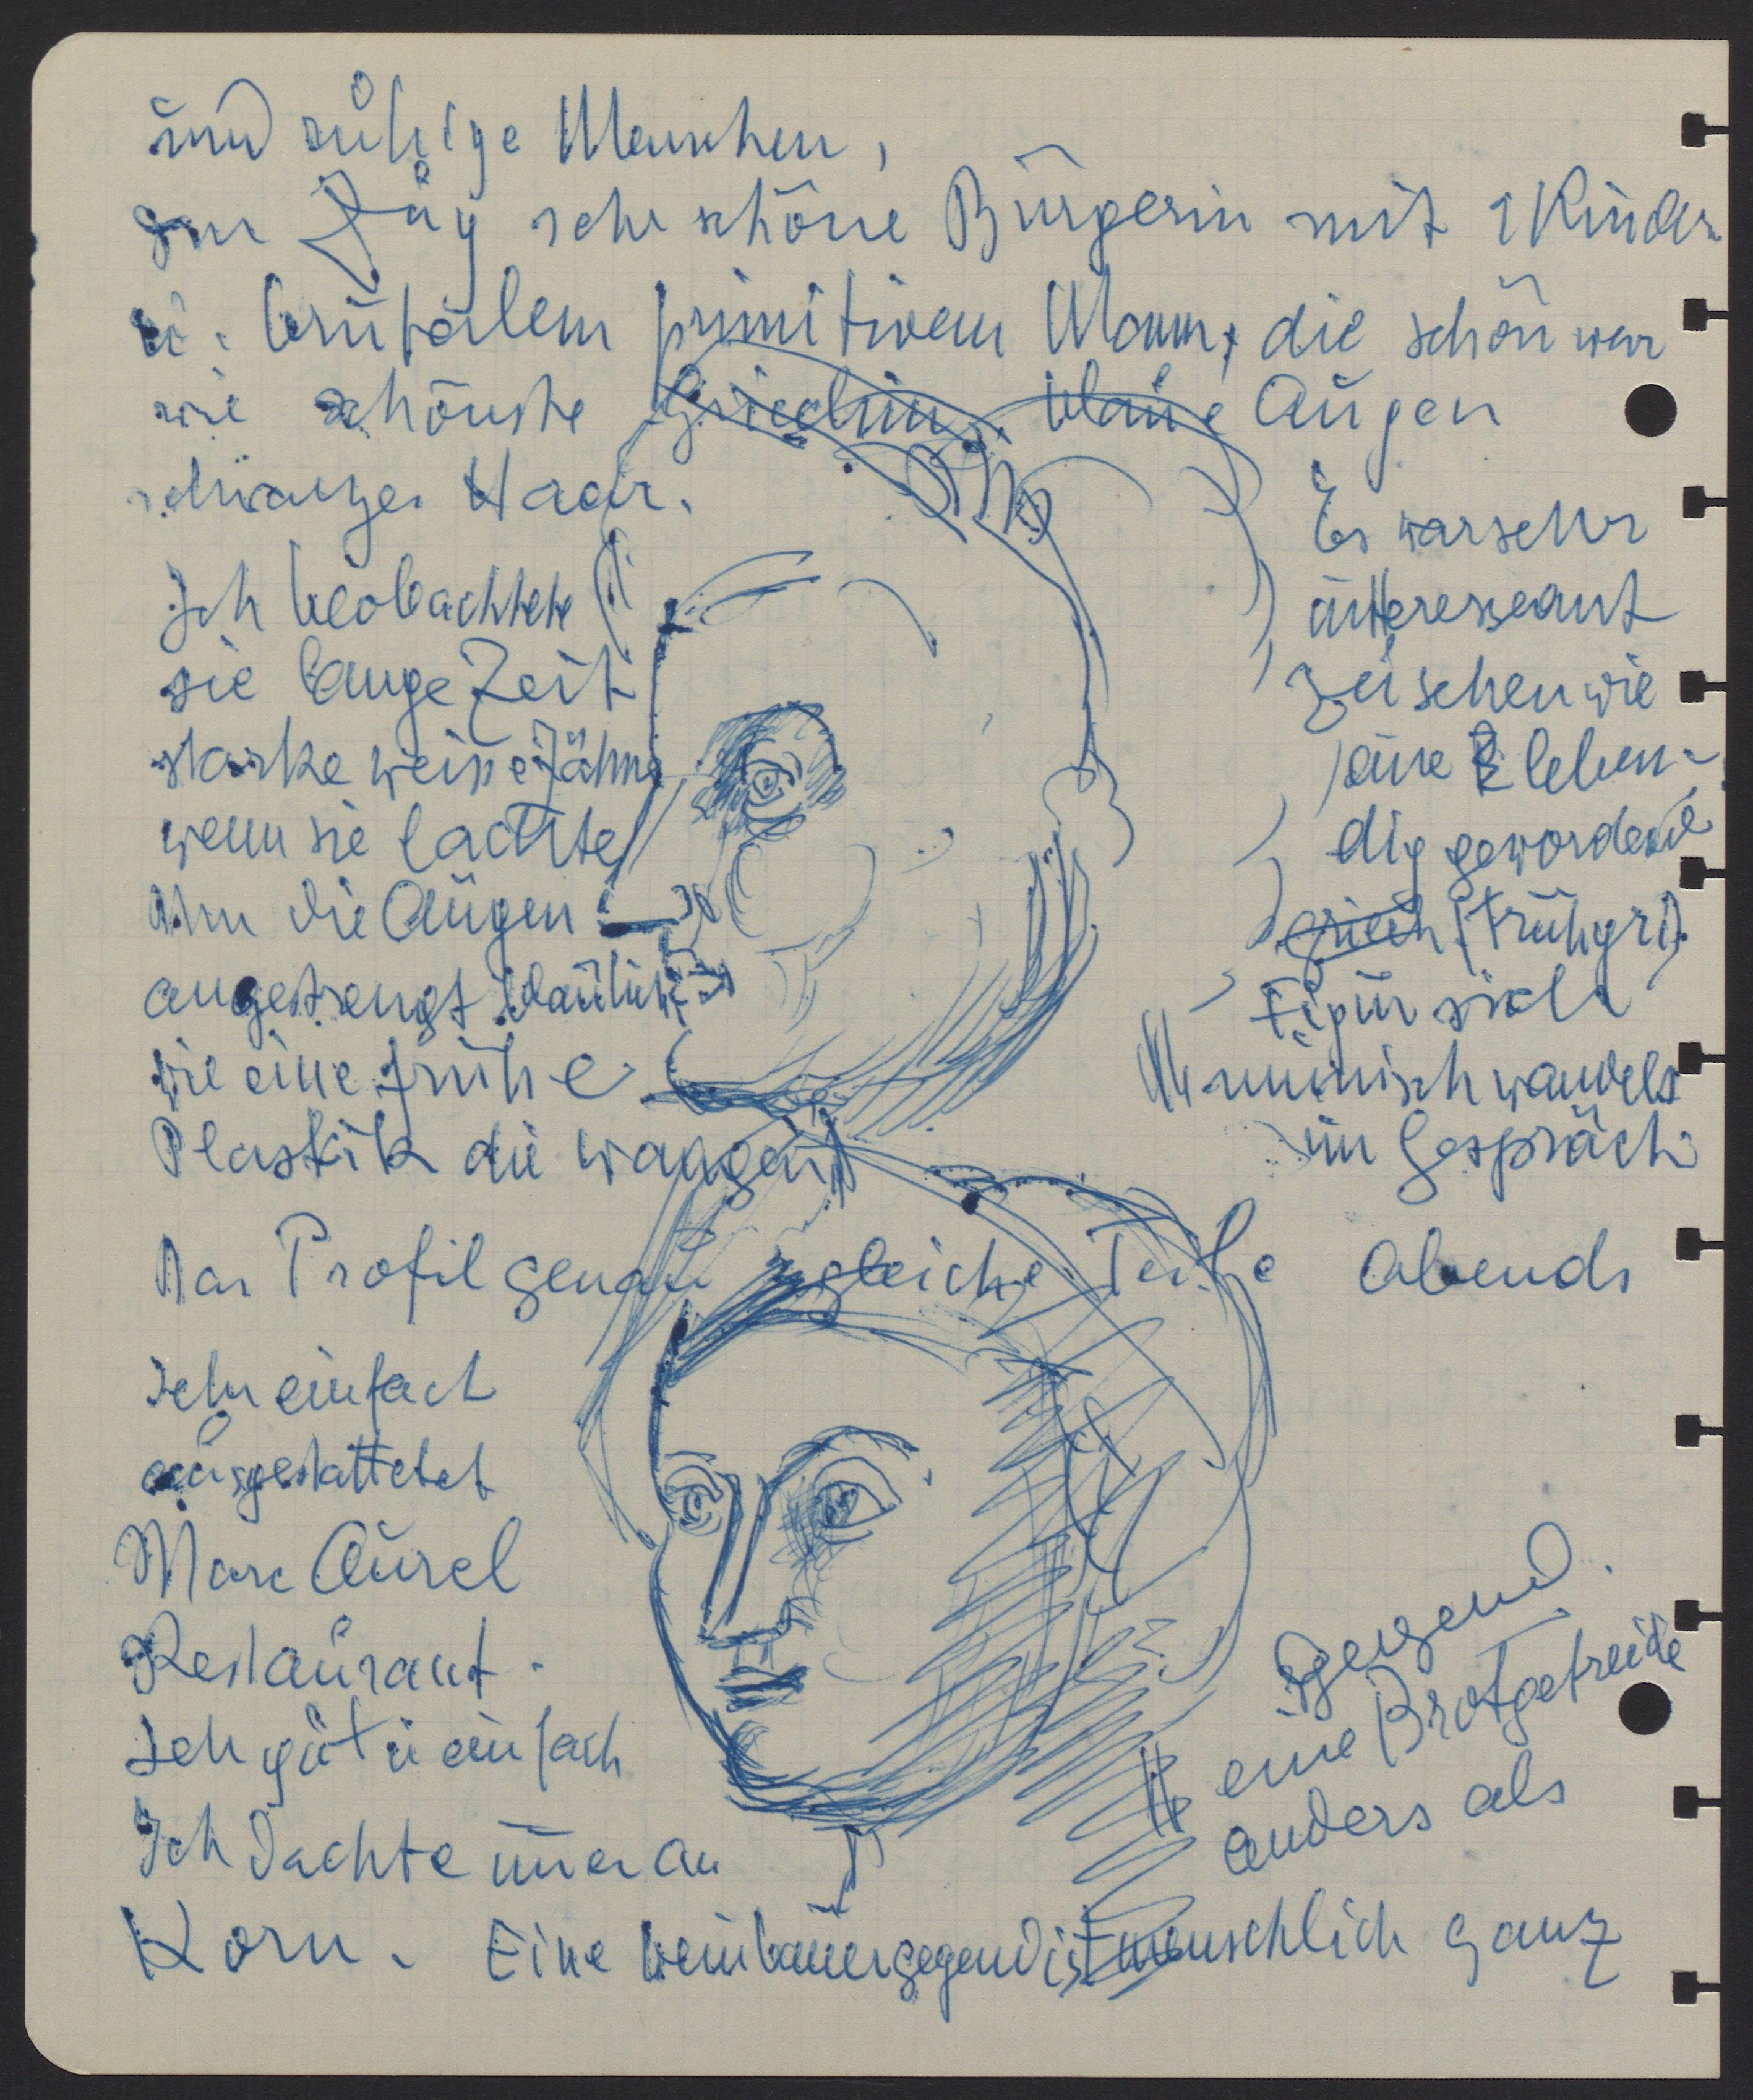 und ruhige Menschen,
Im Zug sehr schöne Bürgerin mit 1 Kinder
u. brutalem primitivem Mann, die schön war
wie schönste Griechin. blaue Augen
schwarzes Haar.
Ich beobachtete
sie lange Zeit
starke weisse Zähne
wenn sie lachte
die Augen
angestrengt bläulich
wie eine frühe
Plastik die wangen
Es war sehr
interessant
zu sehen wie
eine leben-
dig gewordene
griech (frühgr.)
Figur sich
mimisch wandelt
im Gespräch
Das Profil genau gleiche Teile abends
sehr einfach
ausgestattetet
Marc Aurel
Restaurant.
sehr gut u einfach
Ich dachte immer an
Korn. Eine Weinbauergegend ist menschlich ganz
anders als
eine Brotgetreide
gegend.